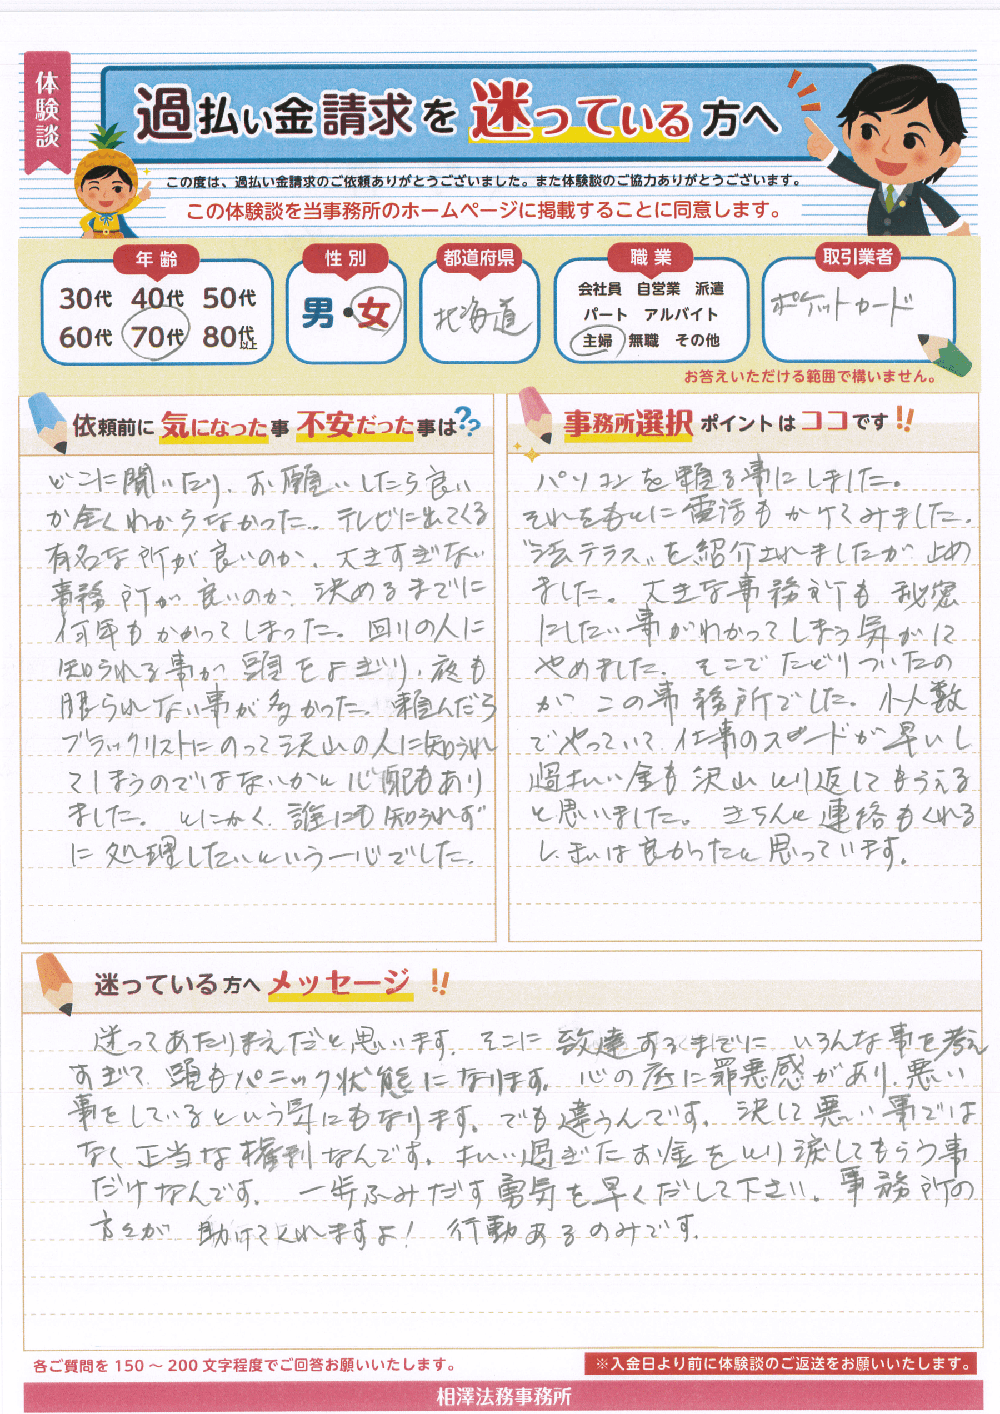 体験談
過払い金請求を迷っている方へ
この度は、過払い金請求のご依頼ありがとうございました。また体験談のご協力ありがとうございます。
この体験談を当事務所のホームページに掲載することに同意します。
年齢
30代 40代 50代
60代 70代 80代以上
性別
男・女
都道府県
北海道
職業
会社員 自営業 派遣
パート アルバイト
主婦 無職 その他
取引業者
ポケットカード
お答えいただける範囲で構いません。
依頼前に気になった事不安だった事は??
どこに聞いたり、お願いしたら良い
か全くわからなかった。テレビに出てくる
有名な所が良いのか、大きすぎない
事務所が良いのか、決めるまでに
何年もかかってしまった。回りの人に
知られる事が頭をよぎり、夜も
眠られない事が多かった。頼んだら
ブラックリストにのって沢山の人に知られ
てしまうのではないかと心配もあり
ました。とにかく、誰にも知られず
に処理したいという一心でした。
事務所選択ポイントはココです!!
パソコンを頼る事にしました。
それをもとに電話もかけてみました。
"法テラス"を紹介されましたが止め
ました。大きな事務所も秘密
にしたい事がわかってしまう気がして
やめました。そこでたどりついたの
がこの事務所でした。小人数
でやっていて、仕事のスピードが早いし
過払い金も沢山とり返してもらえる
と思いました。きちんと連絡もくれる
し、まいは良かったと思っています。
迷っている方へメッセージ!!
迷ってあたりまえだと思います。そこに到達するまでにいろんな事を考え
すぎて頭もパニック状態になります。心の底に罪悪感があり、悪い
事をしているという気にもなります。でも違うんです。決して悪い事では
なく正当な権利なんです。払い過ぎたお金をとり戻してもらう事
だけなんです。一歩ふみだす勇気を早くだして下さい。事務所の
方々が助けてくれますよ！行動あるのみです。
各ご質問を150〜200文字程度でご回答お願いいたします。
※入金日より前に体験談のご返送をお願いいたします。
相澤法務事務所